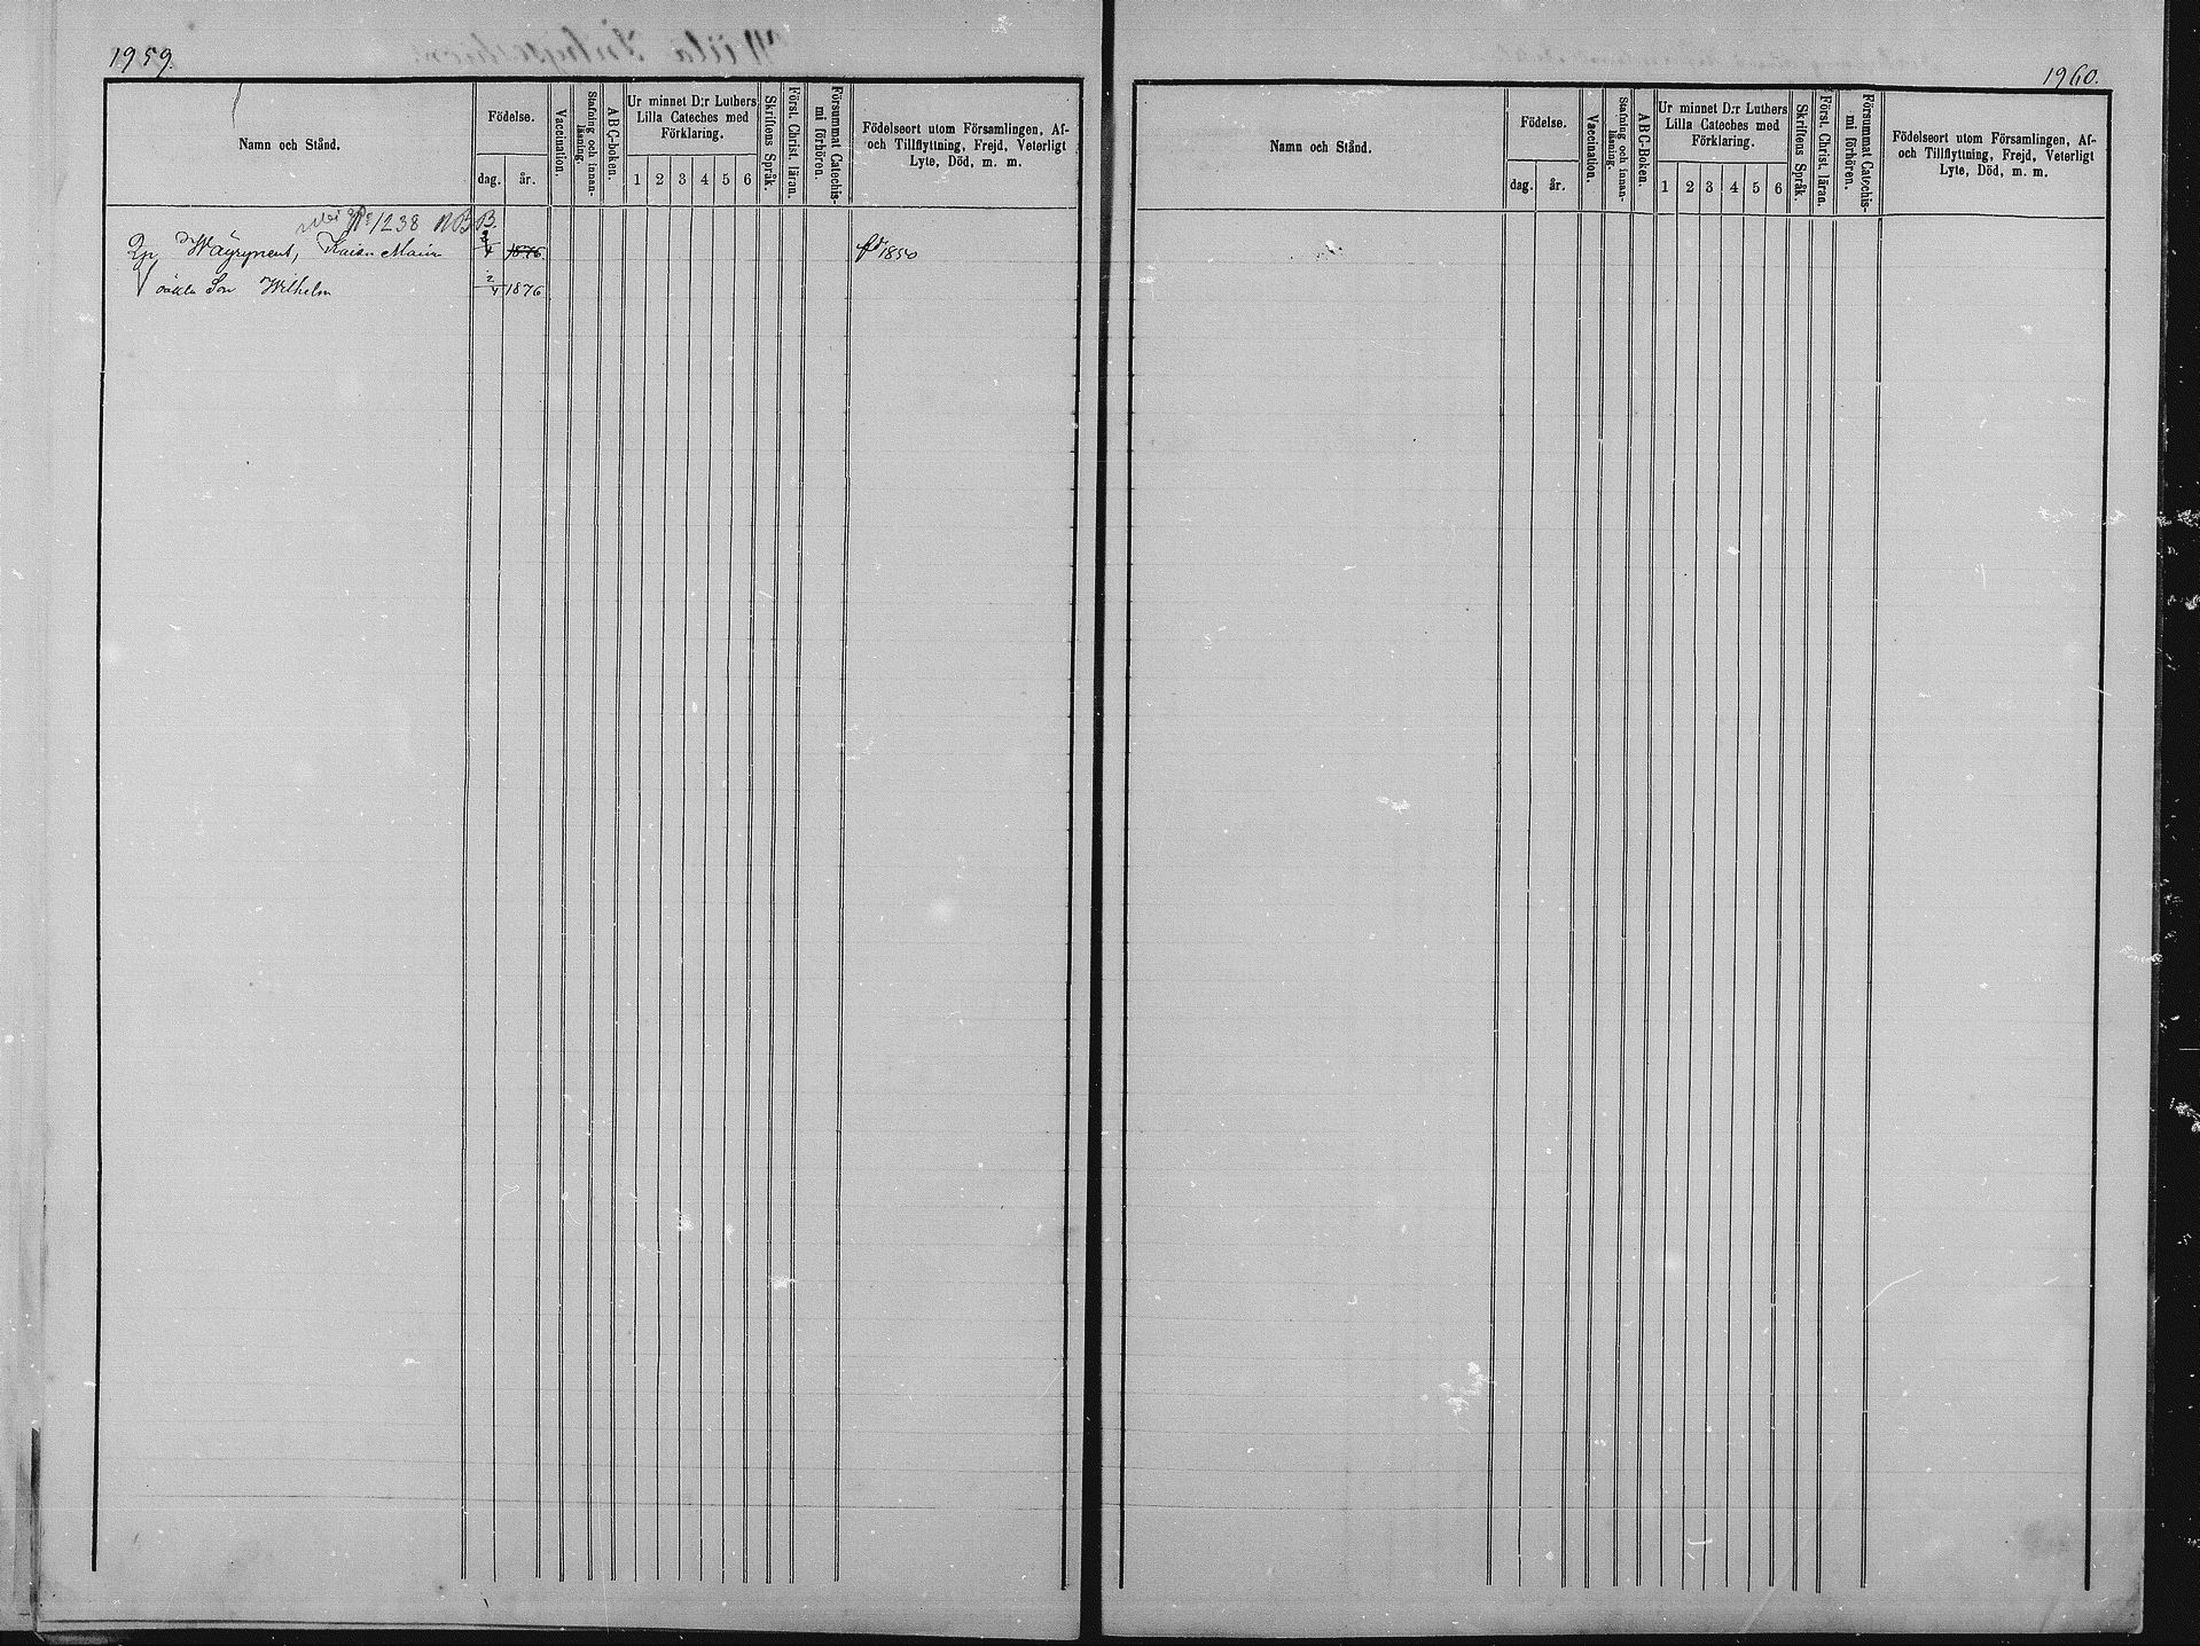 1959.
Namn och Stånd.
Födelse.
dag.
år.
Vaccination.
Stafning och innan-
läsning.
ABC-boken.
Ur minnet D:r Luthers
Lilla Cateches med
Förklaring.
1 2 3 4 5 6
Skriftens Språk.
Först. Christ. läran.
Försummat Catechis-
mi förhören.
Födelseort utom Församlingen, Af-
och Tillflyttning, Frejd, Veterligt
Lyte, Död, m. m.
1238 NB B.
Wäyrynent, Kaisa Maria 1876 1850
oäkta Son Wilhelm 2/4 1876
1960.
Namn och Stånd.
Födelse.
dag.
år.
Vaccination.
Stafning och innan-
läsning.
ABC-Boken.
Ur minnet D:r Luthers
Lilla Cateches med
Förklaring.
1 2 3 4 5 6
Skriftens Språk.
Först. Christ. läran.
Försummat Catechis-
mi förhören.
Födelseort utom Församlingen, Af-
och Tillflyttning, Frejd, Veterligt
Lyte, Död, m. m.